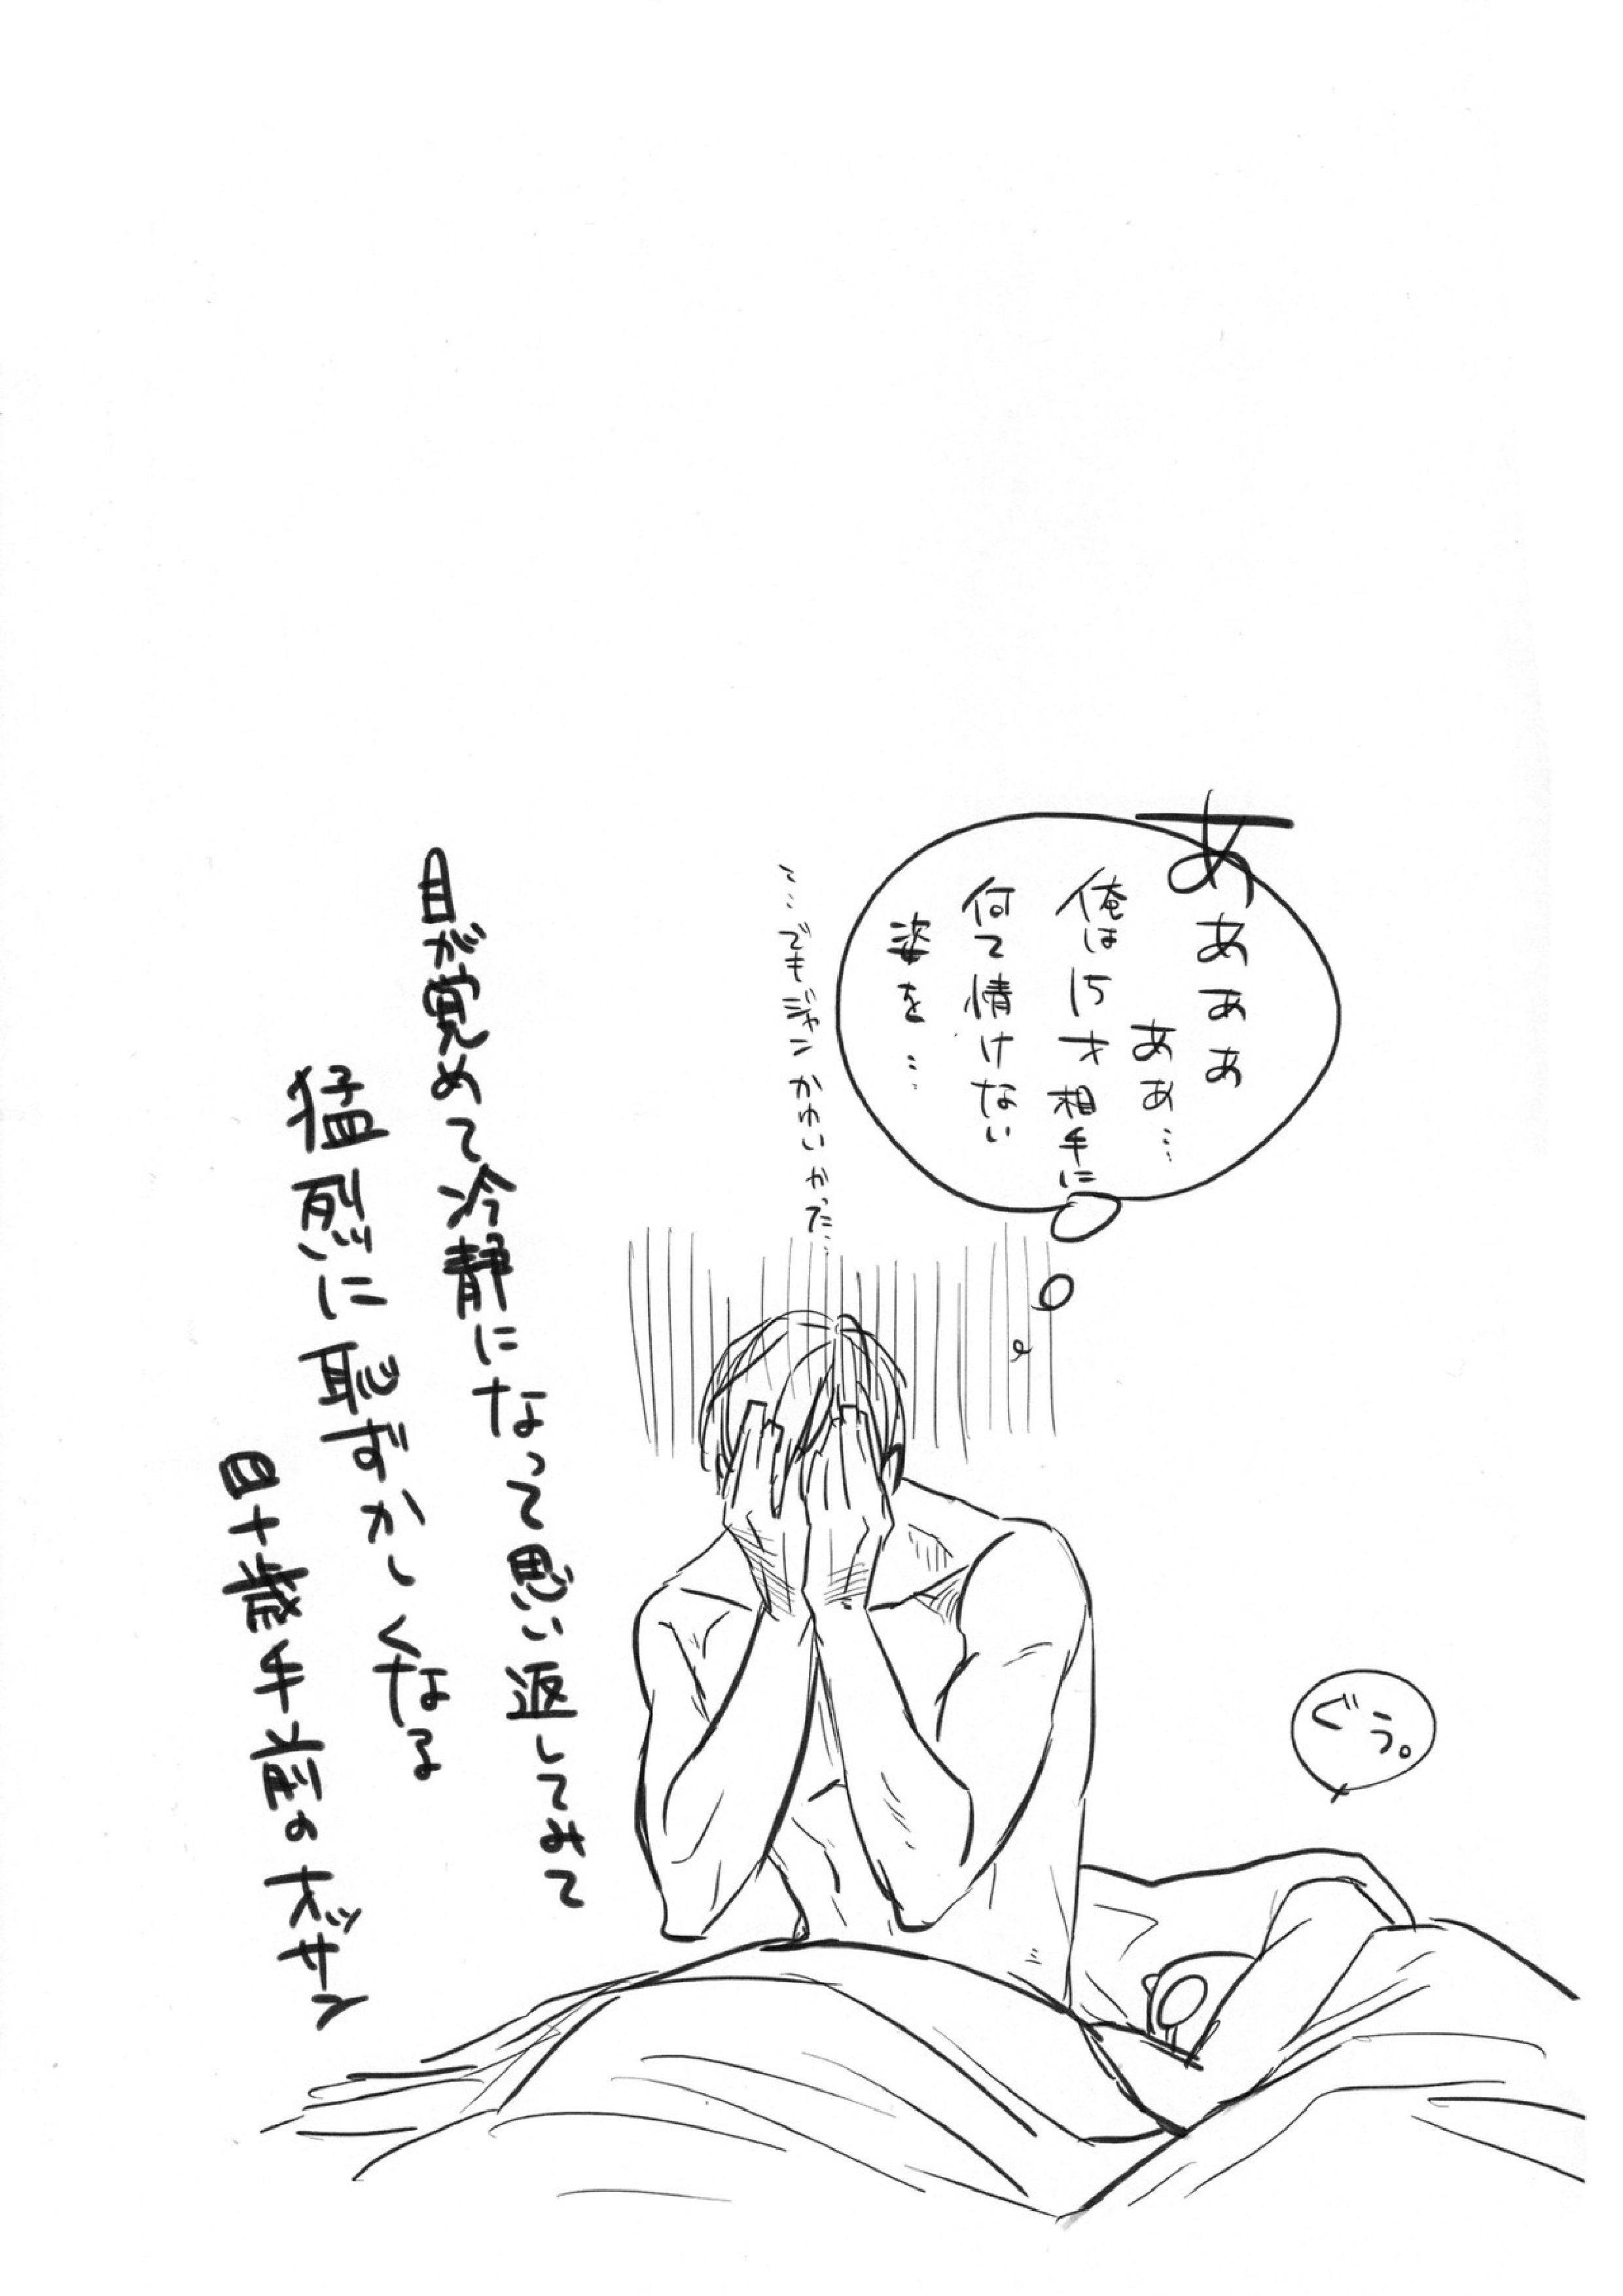 ああああ
ああ…
俺は15才相手に
何て情けない
姿を…
て…でもジャンかわいかった…
目が覚めて冷静になって思い返してみて
猛烈に恥ずかしくなる
四十歳手前のオッサン
ぐう。